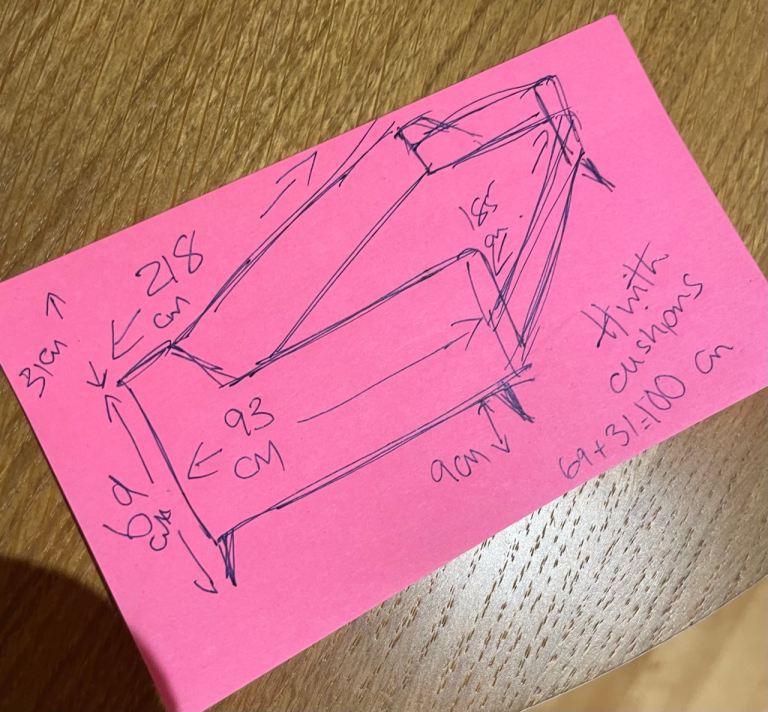 218
cm
31cm
185
cm
93
CM
69
cm
9cm
H with
cushions
69+31=100 cm